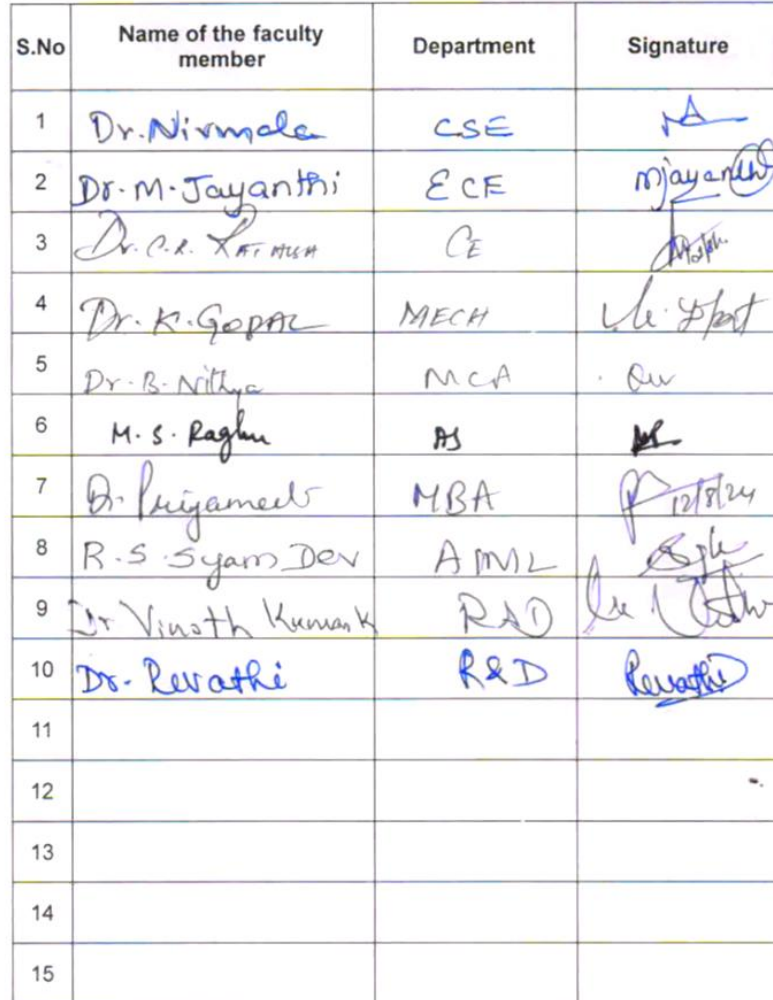 S.No Name of the faculty member Department Signature
1 Dr. Nirmala CSE
2 Dr. M. Jayanthi ECE mjayanthi
3 Dr. C.R. CE
4 Dr. K. GOPAL MECH
5 Dr. B. Nithya MCA
6 M. S. Raghu AS
7 Dr. MBA 12/8/24
8 R.S. Syam Dev AIML
9 Dr Vinoth Kumar K R&D
10 Dr. Revathi R&D Revathi
11
12
13
14
15